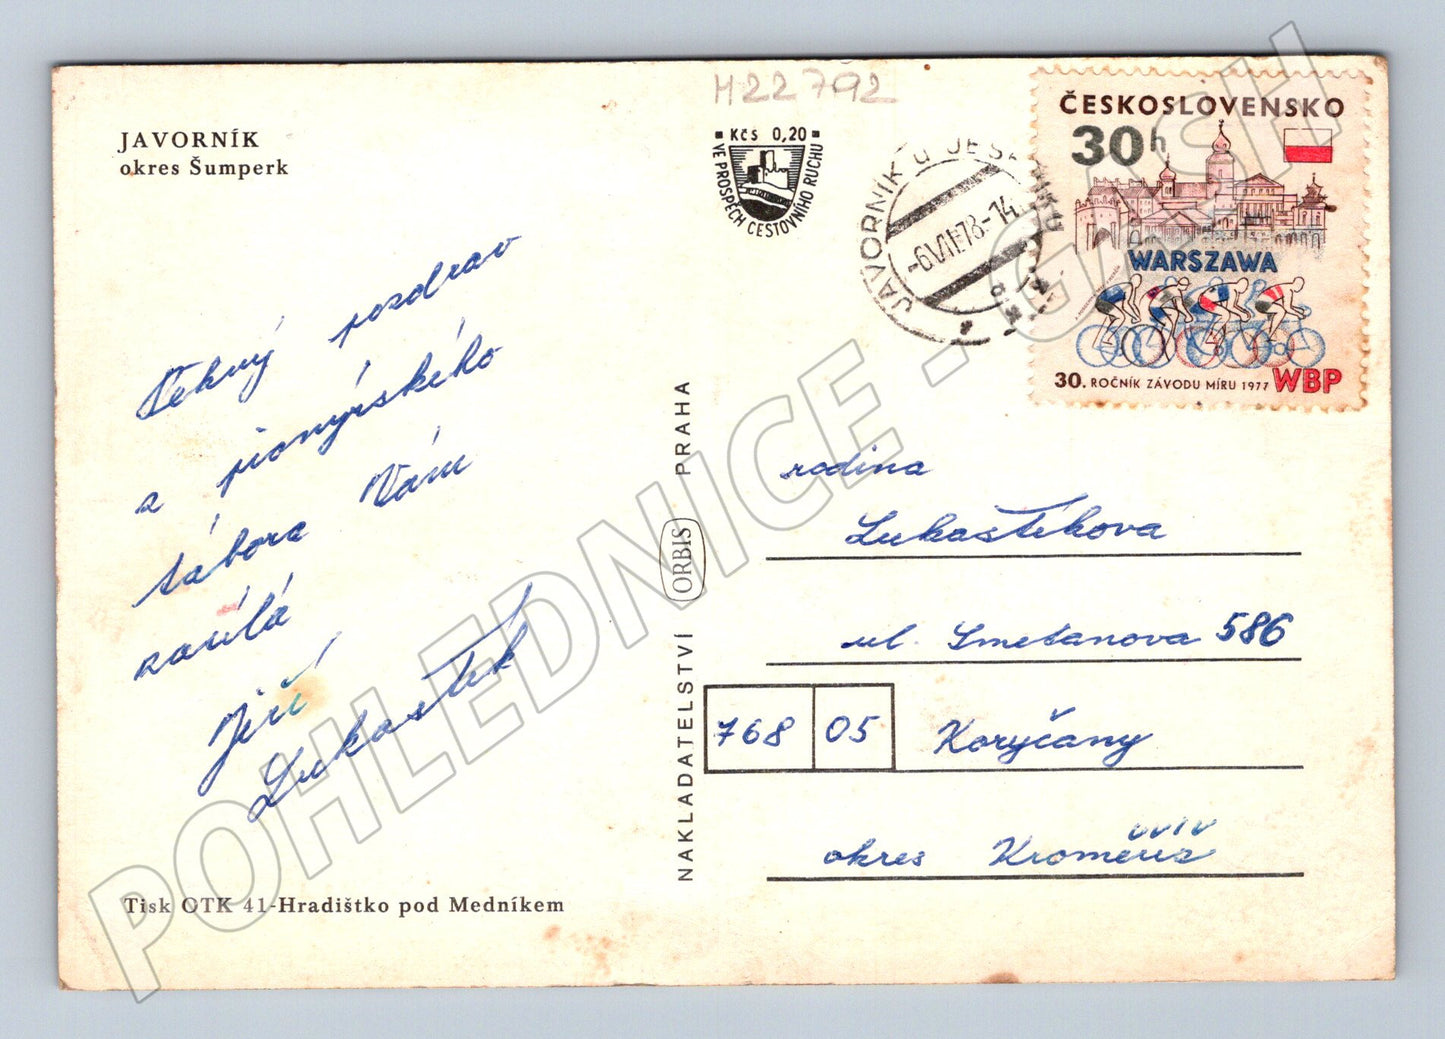 JAVORNÍK
okres Šumperk
Pěkný pozdrav
z pionýrského
tábora Vám
zasílá
Jiří
Lukaštík
Tisk OTK 41-Hradištko pod Medníkem
NAKLADATELSTVÍ ORBIS PRAHA
H22792
Kčs 0,20
VE PROSPĚCH CESTOVNÍHO RUCHU
JAVORNÍK u JESENÍKU
-6.VII.78-14
ČESKOSLOVENSKO
30h
WARSZAWA
30. ROČNÍK ZÁVODU MÍRU 1977 WBP
rodina
Lukaštíkova
ul. Smetanova 586
768 05 Koryčany
okres Kroměříž
POHLEDNICE - CASH